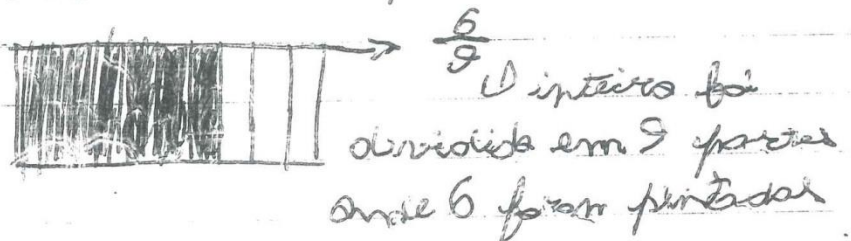 6/9
O inteiro foi
dividido em 9 partes
onde 6 foram pintadas